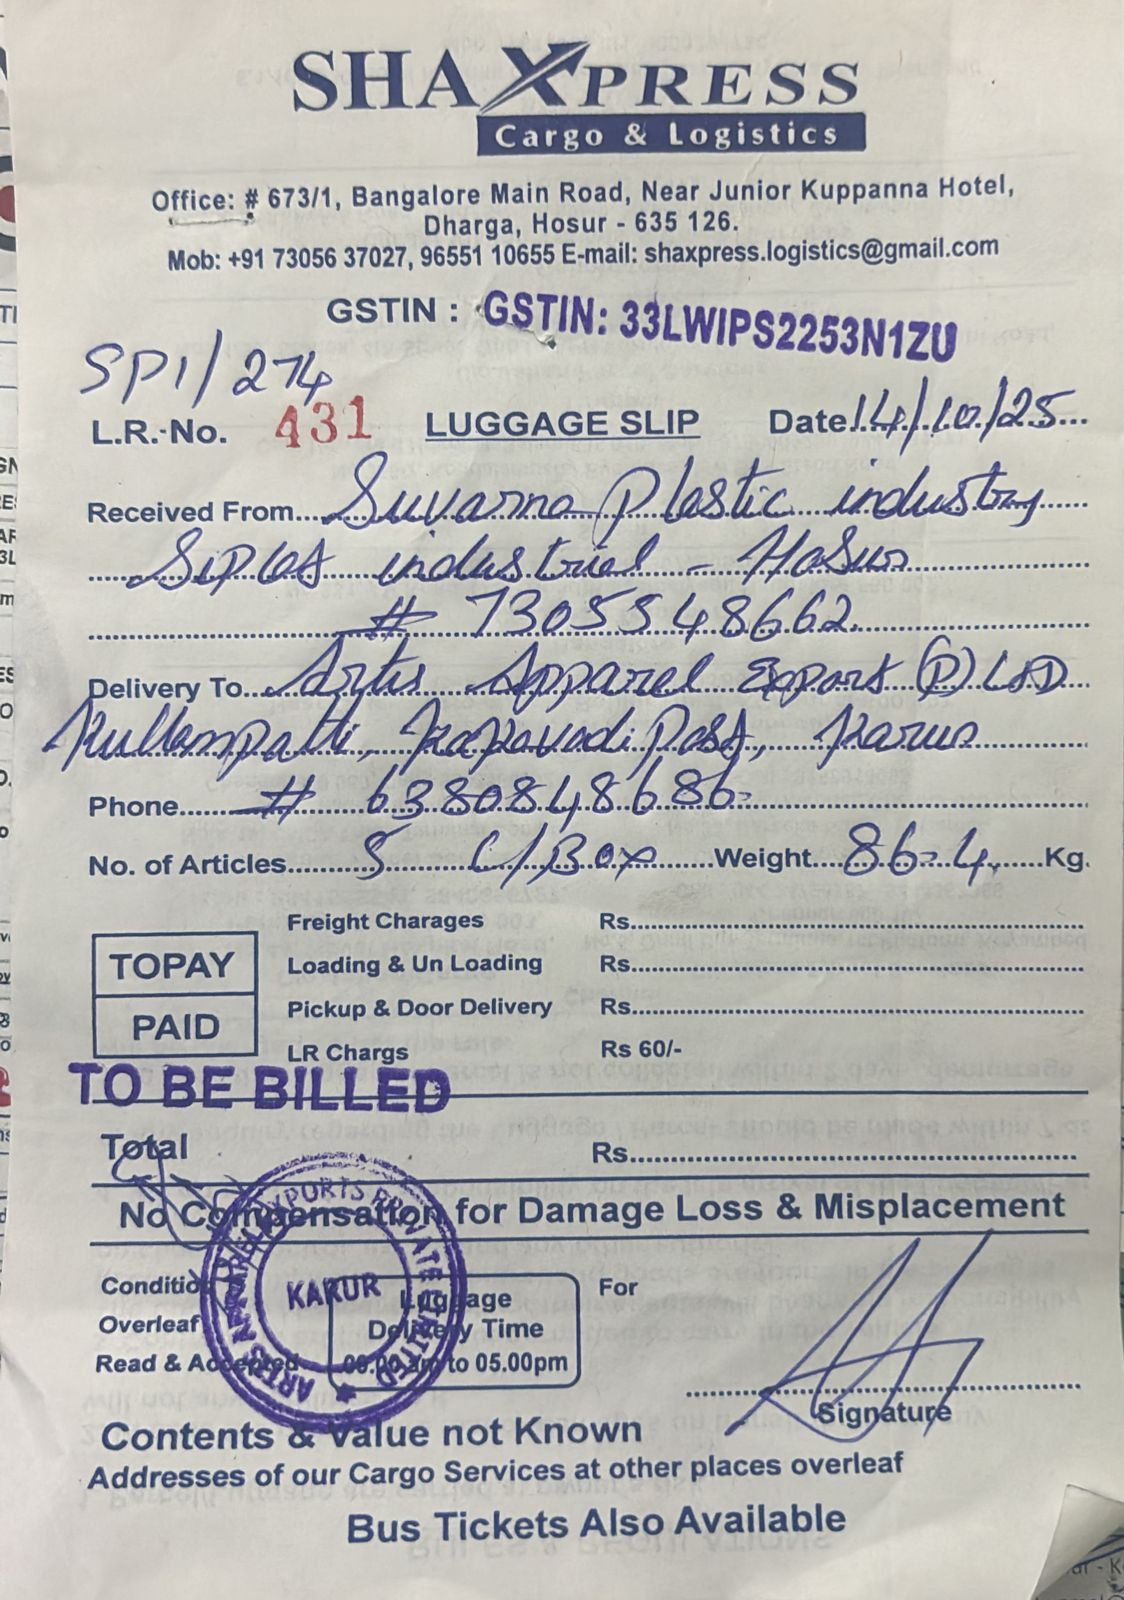 SHAXPRESS
Cargo & Logistics
Office: # 673/1, Bangalore Main Road, Near Junior Kuppanna Hotel,
Dharga, Hosur - 635 126.
Mob: +91 73056 37027, 96551 10655 E-mail: shaxpress.logistics@gmail.com
GSTIN : GSTIN: 33LWIPS2253N1ZU
SPI/274
L.R.-No. 431 LUGGAGE SLIP Date 14/10/25
Received From Suvarna Plastic industry
industrial - Hosur
# 7305548662
Delivery To Artis Apparel Export (P) Ltd
Kullampatti, Post, Karur
Phone # 6380848686
No. of Articles 5 C/Box Weight 86.4 Kg.
Freight Charages Rs.
TOPAY Loading & Un Loading Rs.
Pickup & Door Delivery Rs.
PAID
LR Chargs Rs 60/-
TO BE BILLED
Total Rs.
No Compensation for Damage Loss & Misplacement
Condition Overleaf Read & Accepted
ARTIS APPAREL EXPORTS PRIVATE LIMITED
KARUR
Luggage
Delivery Time
09.00 am to 05.00pm
For
Signature
Contents & Value not Known
Addresses of our Cargo Services at other places overleaf
Bus Tickets Also Available